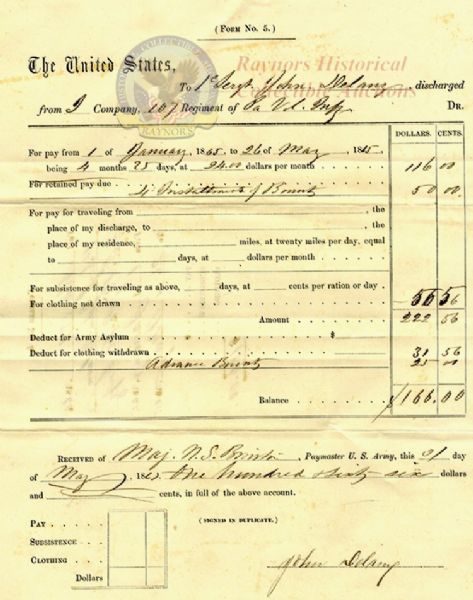 ( FORM NO. 5. )
Raynors Historical
Collectible Auctions
RAYNORS
The United States,
To 1st Sergt John Delany, discharged
from I Company, 107 Regiment of Pa Vol. Infy DR.
DOLLARS. CENTS.
For pay from 1 of January, 1865, to 26 of May, 1865,
being 4 months 25 days, at 24.00 dollars per month 116 00
For retained pay due 4 Installments of Bounty 50 00
For pay for traveling from the
place of my discharge, to the
place of my residence, miles, at twenty miles per day, equal
to days, at dollars per month
For subsistence for traveling as above, days, at cents per ration or day
For clothing not drawn 56 56
Amount 222 56
Deduct for Army Asylum $
Deduct for clothing withdrawn 31 56
Advance Bounty 25 00
Balance $166.00
RECEIVED OF Maj. N. S. Paymaster U. S. Army, this day
of May, 186 One hundred sixty six dollars
and cents, in full of the above account.
(SIGNED IN DUPLICATE.)
PAY
SUBSISTENCE
CLOTHING
Dollars
John Delany